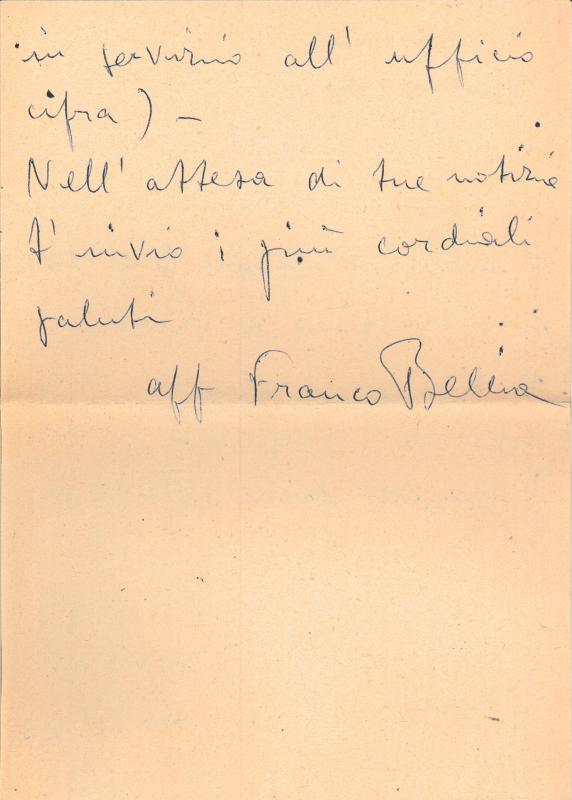 in servizio all' ufficio
cifra) –
Nell' attesa di tue notizie
t' invio i più cordiali
saluti
aff Franco Bellia